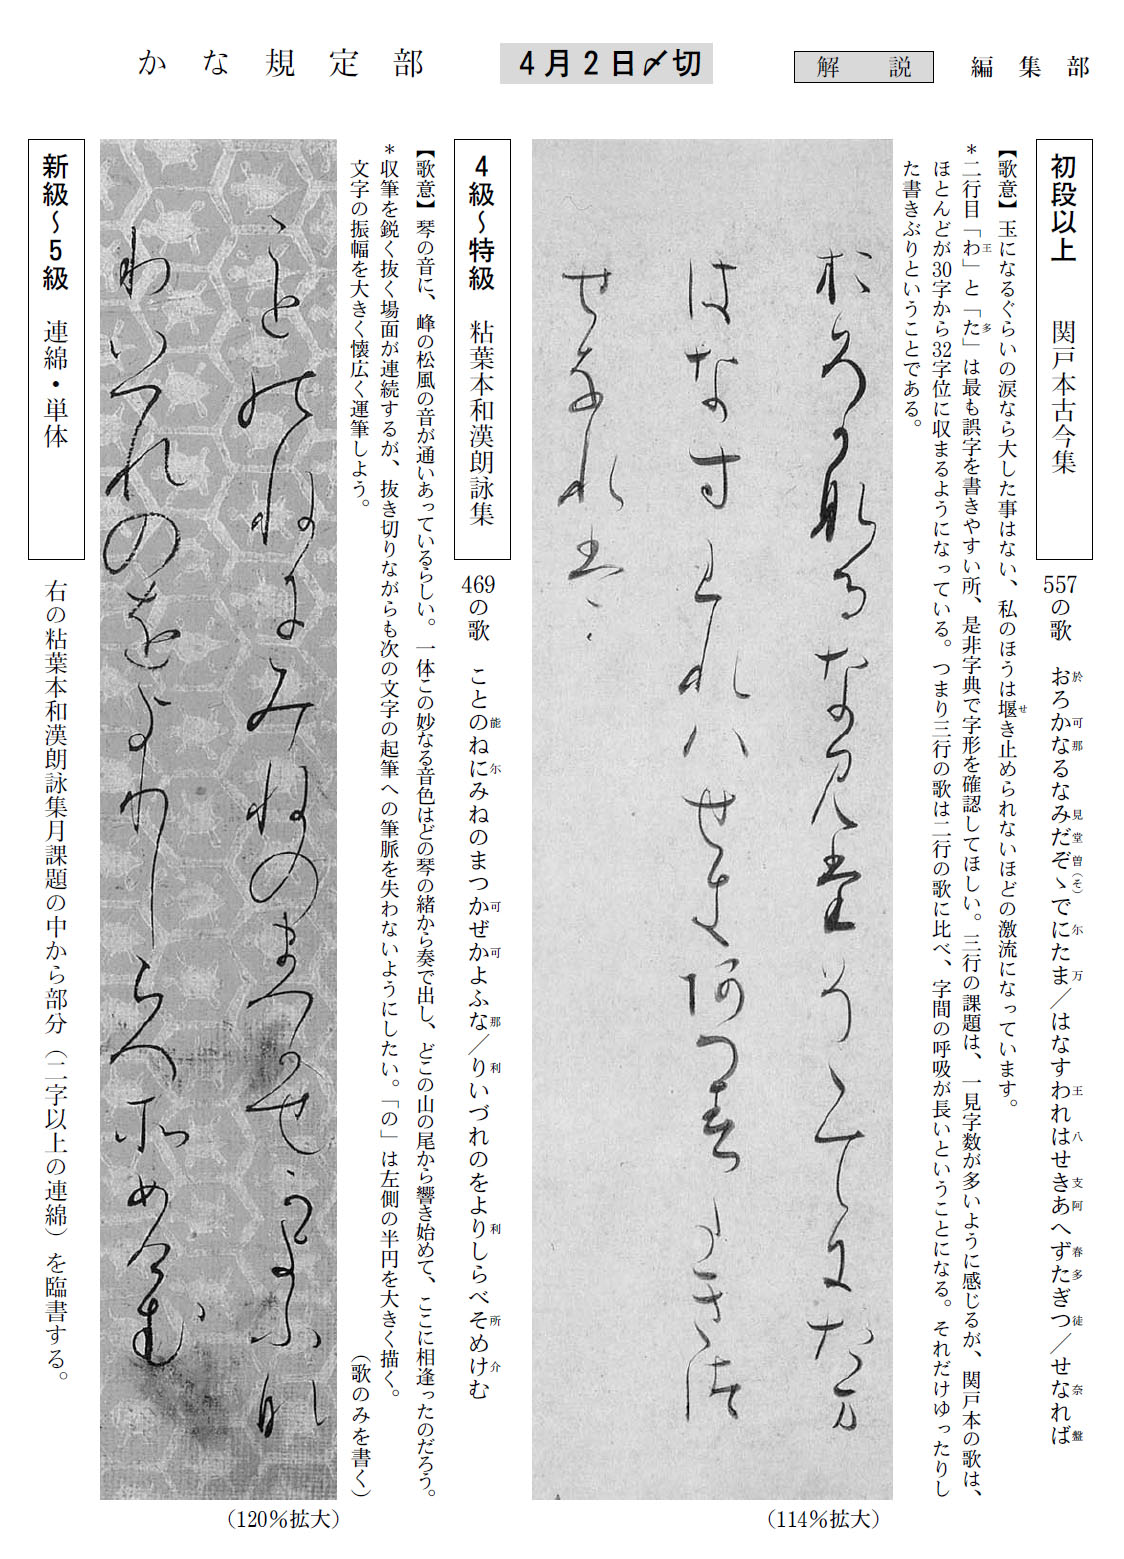 かな規定部
4月2日〆切
解説
編集部
初段以上 関戸本古今集
557の歌 おろかなるなみだぞゝでにたま／はなすわれはせきあへずたぎつ／せなれば
於 可 那 見 堂 曽(そ) 尓 万 王 八 支 阿 春 多 徒 奈 盤
【歌意】玉になるぐらいの涙なら大した事はない、私のほうは堰き止められないほどの激流になっています。
せ
＊二行目「わ」と「た」は最も誤字を書きやすい所、是非字典で字形を確認してほしい。三行の課題は、一見字数が多いように感じるが、関戸本の歌は、
王 多
ほとんどが30字から32字位に収まるようになっている。つまり三行の歌は二行の歌に比べ、字間の呼吸が長いということになる。それだけゆったりし
た書きぶりということである。
於ろ可那るな見堂曽ゝてに多万
はなす王れ八せ支阿へ春多きつ
せ奈れ盤
（114%拡大）
4級～特級 粘葉本和漢朗詠集
469の歌 ことのねにみねのまつかぜかよふな／りいづれのをよりしらべそめけむ
能 尓 可 可 那 利 利 所 介
【歌意】琴の音に、峰の松風の音が通いあっているらしい。一体この妙なる音色はどの琴の緒から奏で出し、どこの山の尾から響き始めて、ここに相逢ったのだろう。
＊収筆を鋭く抜く場面が連続するが、抜き切りながらも次の文字の起筆への筆脈を失わないようにしたい。「の」は左側の半円を大きく描く。
文字の振幅を大きく懐広く運筆しよう。
（歌のみを書く）
こと能ね尓みねのまつ可せ可よふ那
利いつれのをよ利しらへ所め介む
（120%拡大）
新級～5級 連綿・単体
右の粘葉本和漢朗詠集月課題の中から部分（二字以上の連綿）を臨書する。